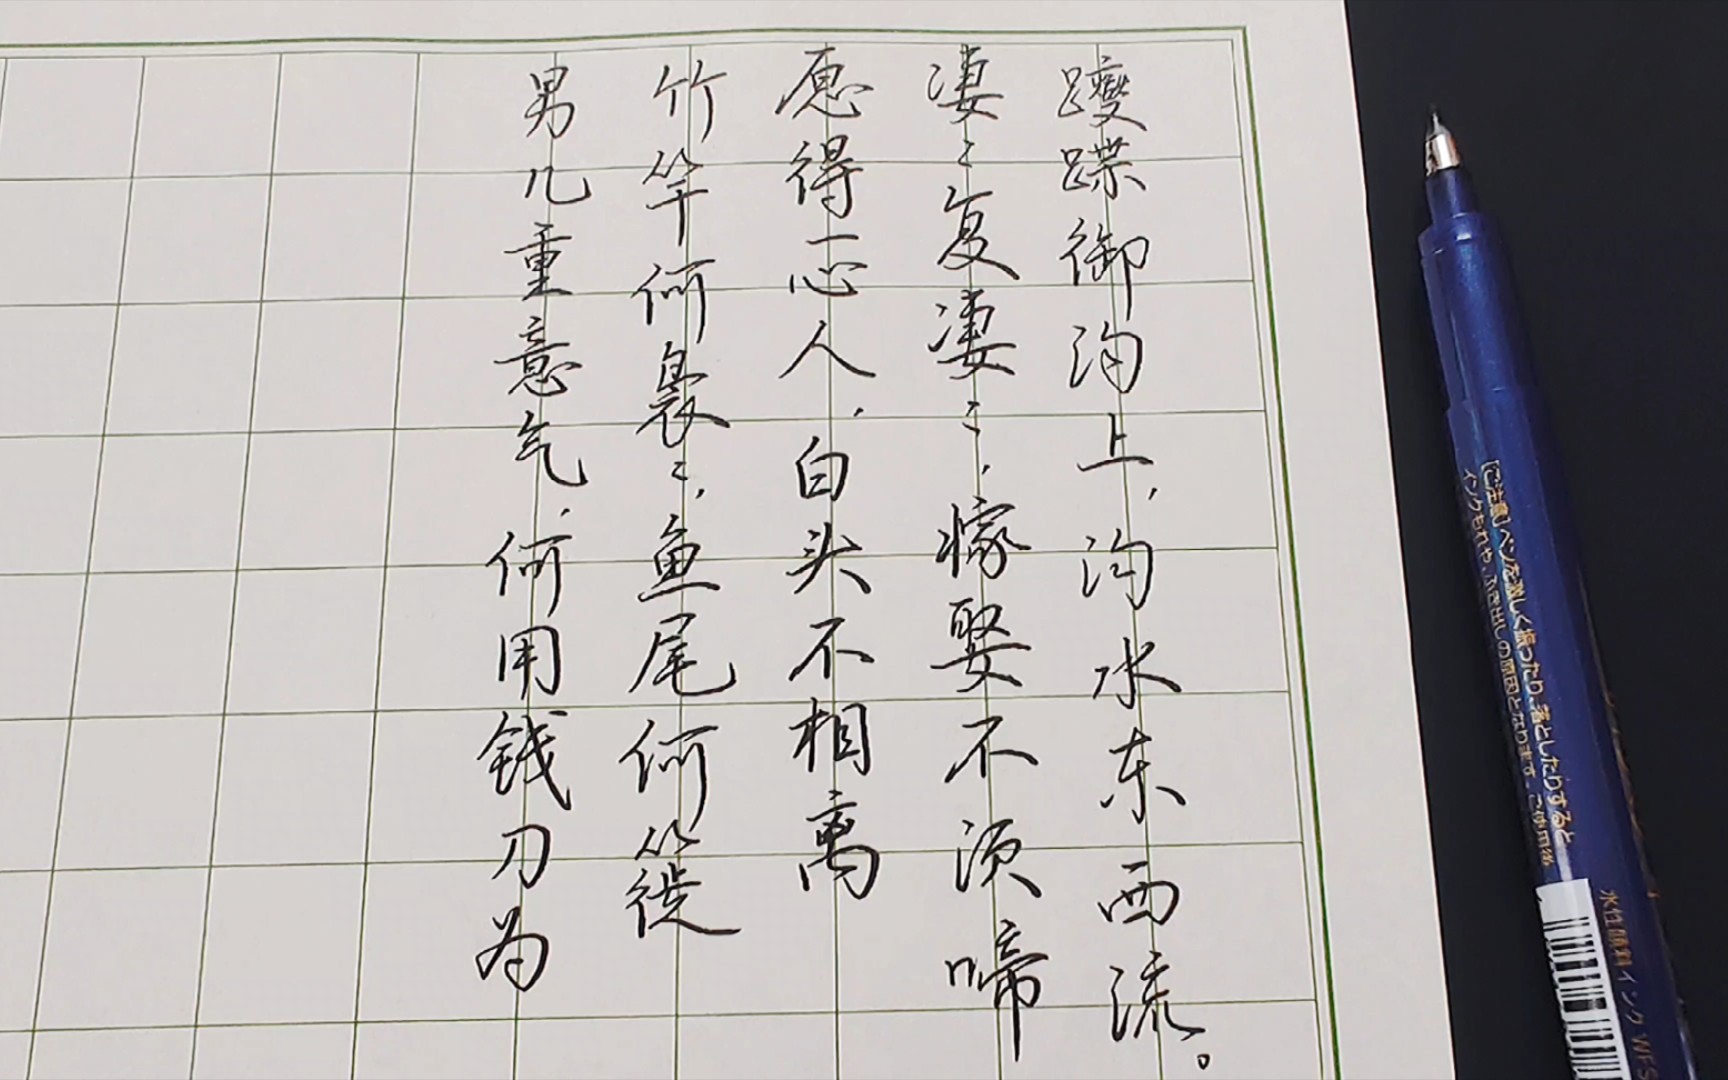 躞蹀御沟上，沟水东西流。
凄々复凄々，嫁娶不须啼
愿得一心人，白头不相离
竹竿何袅々，鱼尾何簁
男儿重意气，何用钱刀为
【ご注意】ペンを激しく振ったり、落としたりすると
インクもれや、ふき出しの原因となります。ご使用後
水性顔料インク WFS